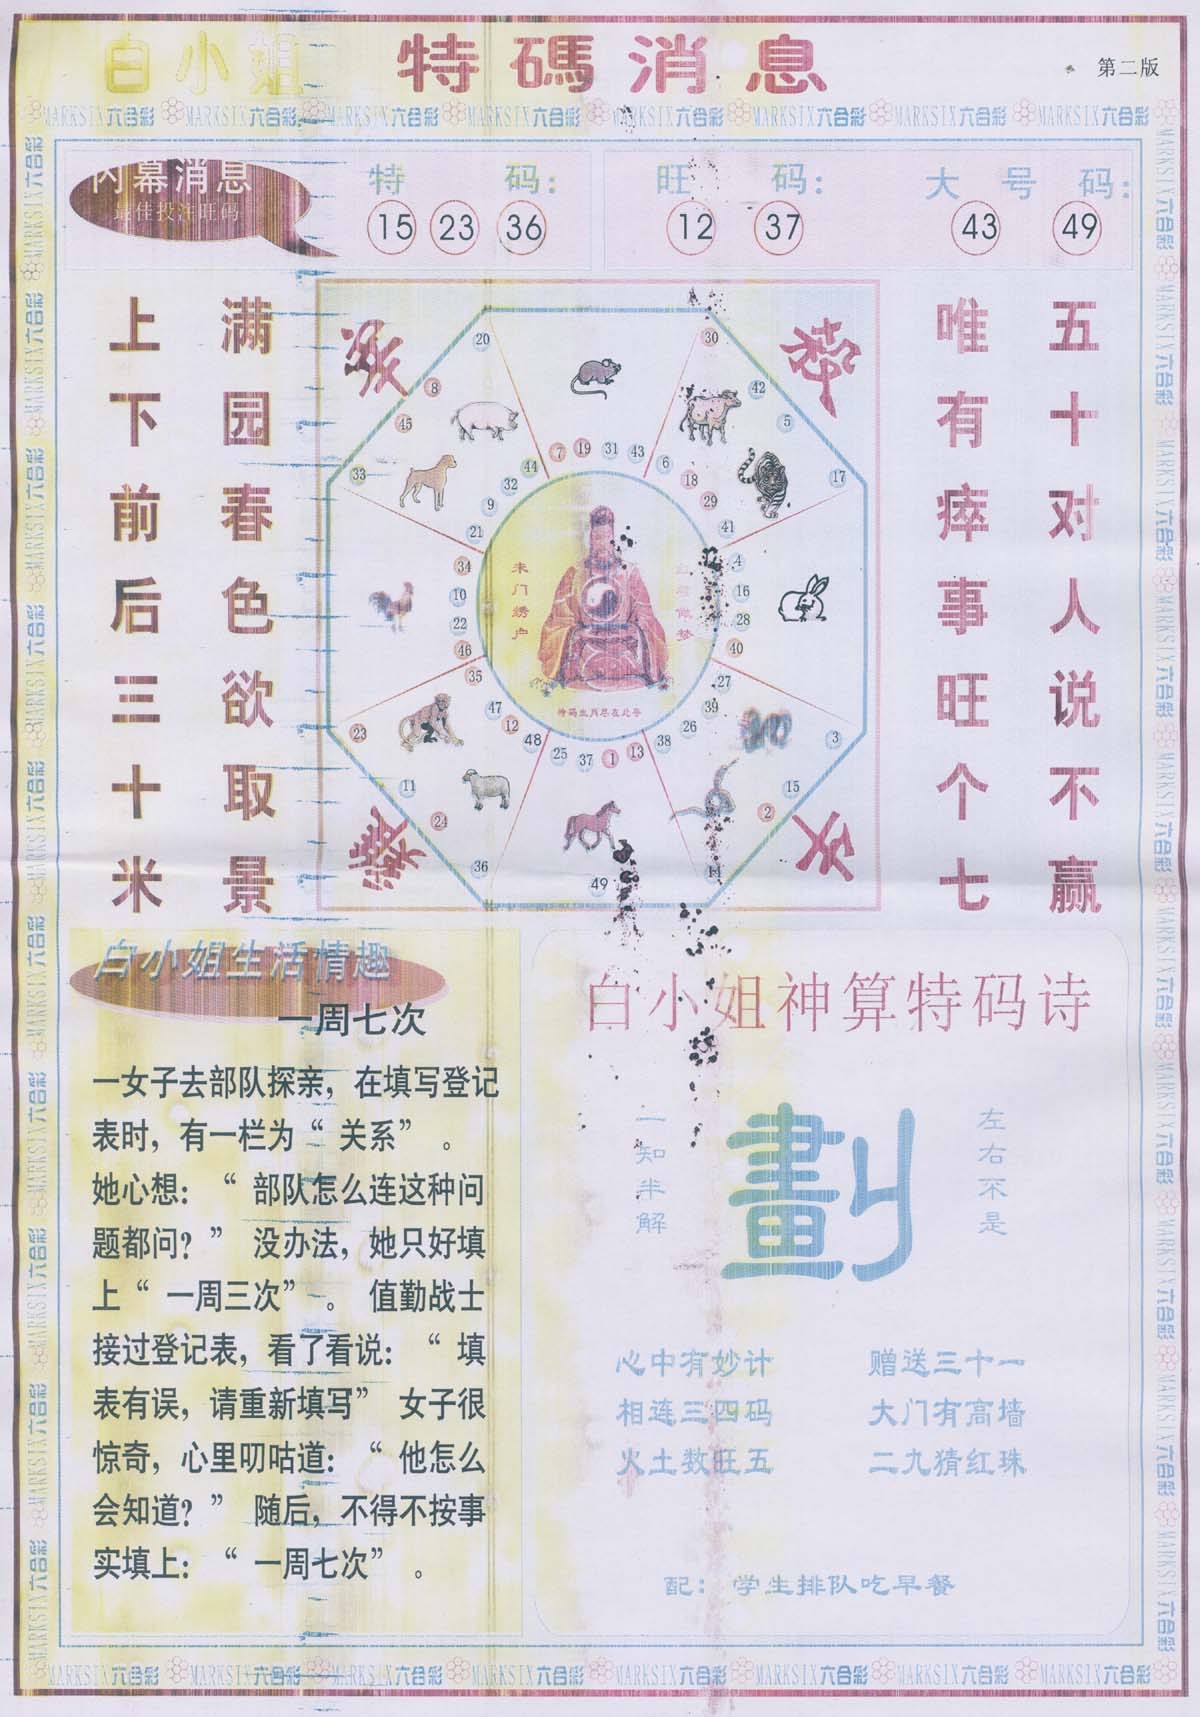 白小姐 特碼消息 第二版
MARKSIX六合彩 MARKSIX六合彩 MARKSIX六合彩 MARKSIX六合彩 MARKSIX六合彩 MARKSIX六合彩 MARKSIX六合彩 MARKSIX六合彩
内幕消息
最佳投注旺码
特 码：
15 23 36
旺 码：
12 37
大 号 码：
43 49
五十对人说不赢
唯有瘁事旺个七
满园春色欲取景
上下前后三十米
20
30
8
42
45
5
33
17
44
7
19
31
43
6
32
18
9
29
21
41
34
4
10
16
22
28
46
40
35
27
47
39
12
26
48
38
25
37
1
13
23
3
11
15
24
2
36
49
14
朱门绣户
特码生肖尽在此寻
白小姐生活情趣
一周七次
一女子去部队探亲，在填写登记
表时，有一栏为“关系”。
她心想：“部队怎么连这种问
题都问？” 没办法，她只好填
上“一周三次”。 值勤战士
接过登记表，看了看说：“填
表有误，请重新填写” 女子很
惊奇，心里叨咕道：“他怎么
会知道？” 随后，不得不按事
实填上：“一周七次”。
白小姐神算特码诗
左右不是
劃
一知半解
心中有妙计 赠送三十一
相连三四码 大门有高墙
火土数旺五 二九猜红珠
配：学生排队吃早餐
MARKSIX六合彩 MARKSIX六合彩 MARKSIX六合彩 MARKSIX六合彩 MARKSIX六合彩 MARKSIX六合彩 MARKSIX六合彩 MARKSIX六合彩